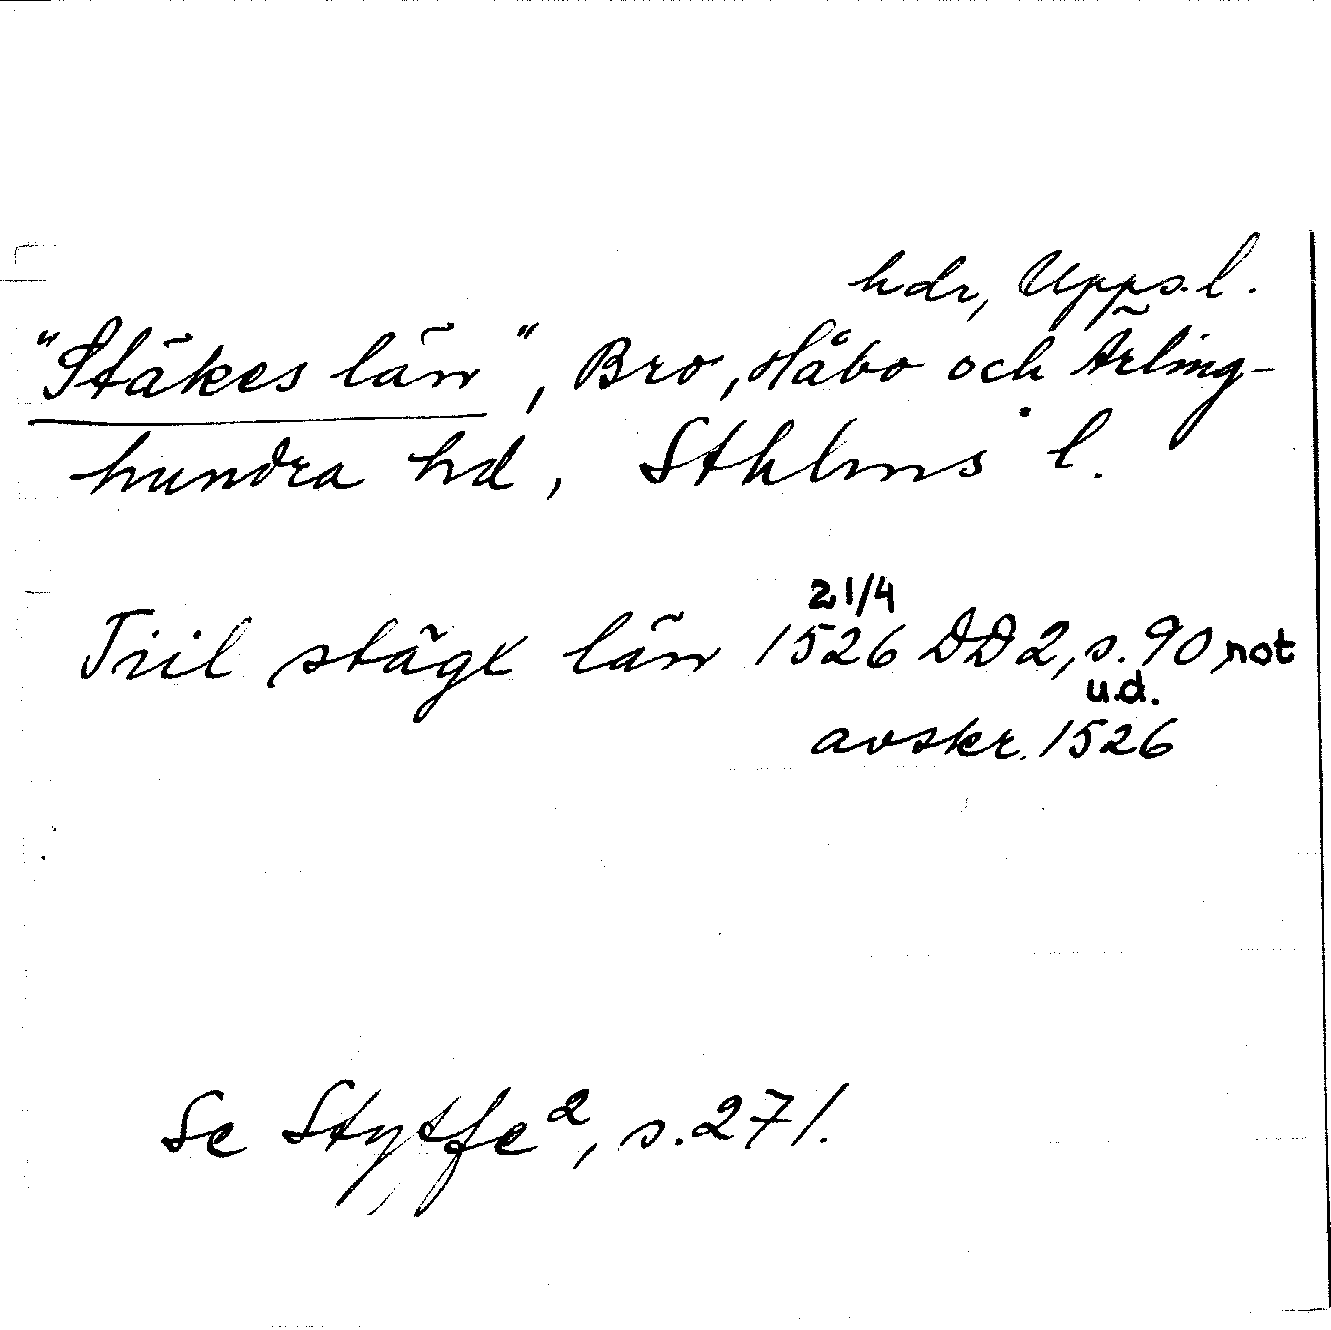 hdr, Upps. l.
"Stäkes län", Bro, Håbo och Ärling-
hundra hd, Sthlms l.
21/4
Tiil stägx län 1526 DD2, s. 90 not
u.d.
avskr. 1526
Se Styffe², s. 271.